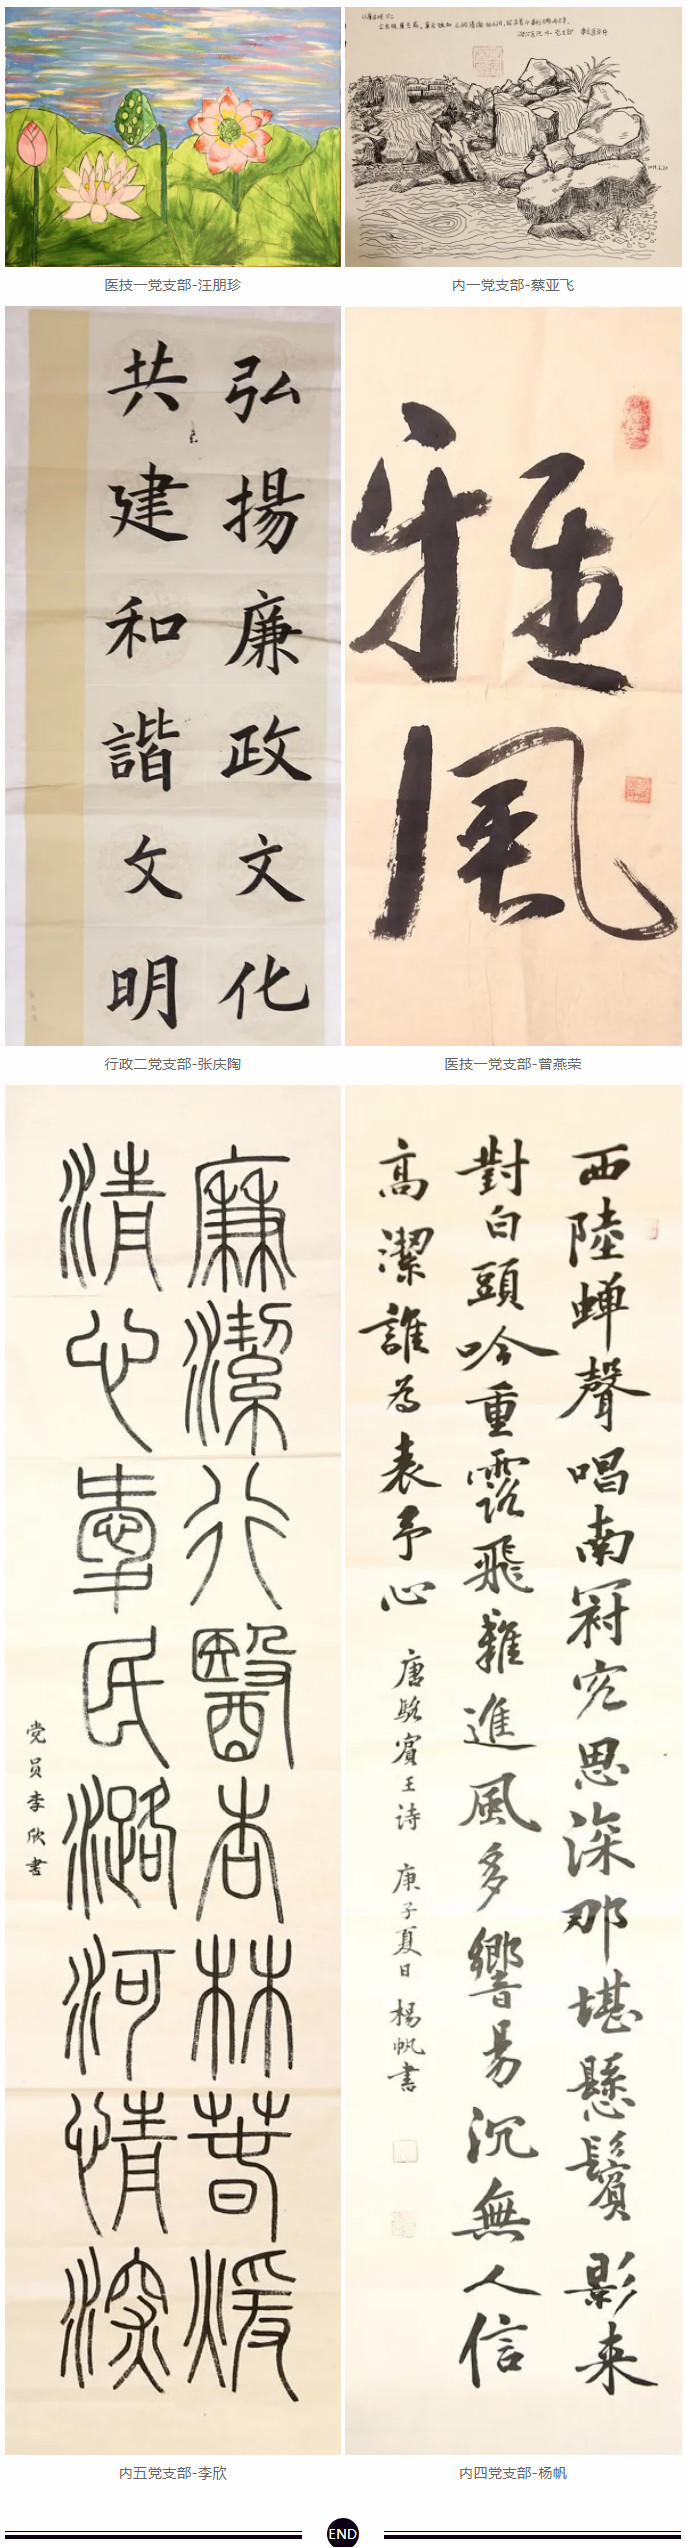 医技一党支部-汪朋珍
内一党支部-蔡亚飞
弘揚廉政文化
共建和諧文明
行政二党支部-张庆陶
雅風
医技一党支部-曾燕荣
廉潔行醫杏林春暖
清心事民潞河情深
党员李欣书
内五党支部-李欣
西陸蝉聲唱南冠客思深那堪懸鬢影来
對白頭吟重露飛難進風多響易沉無人信
高潔誰為表予心
唐駱賓王诗 庚子夏日 楊帆書
内四党支部-杨帆
END